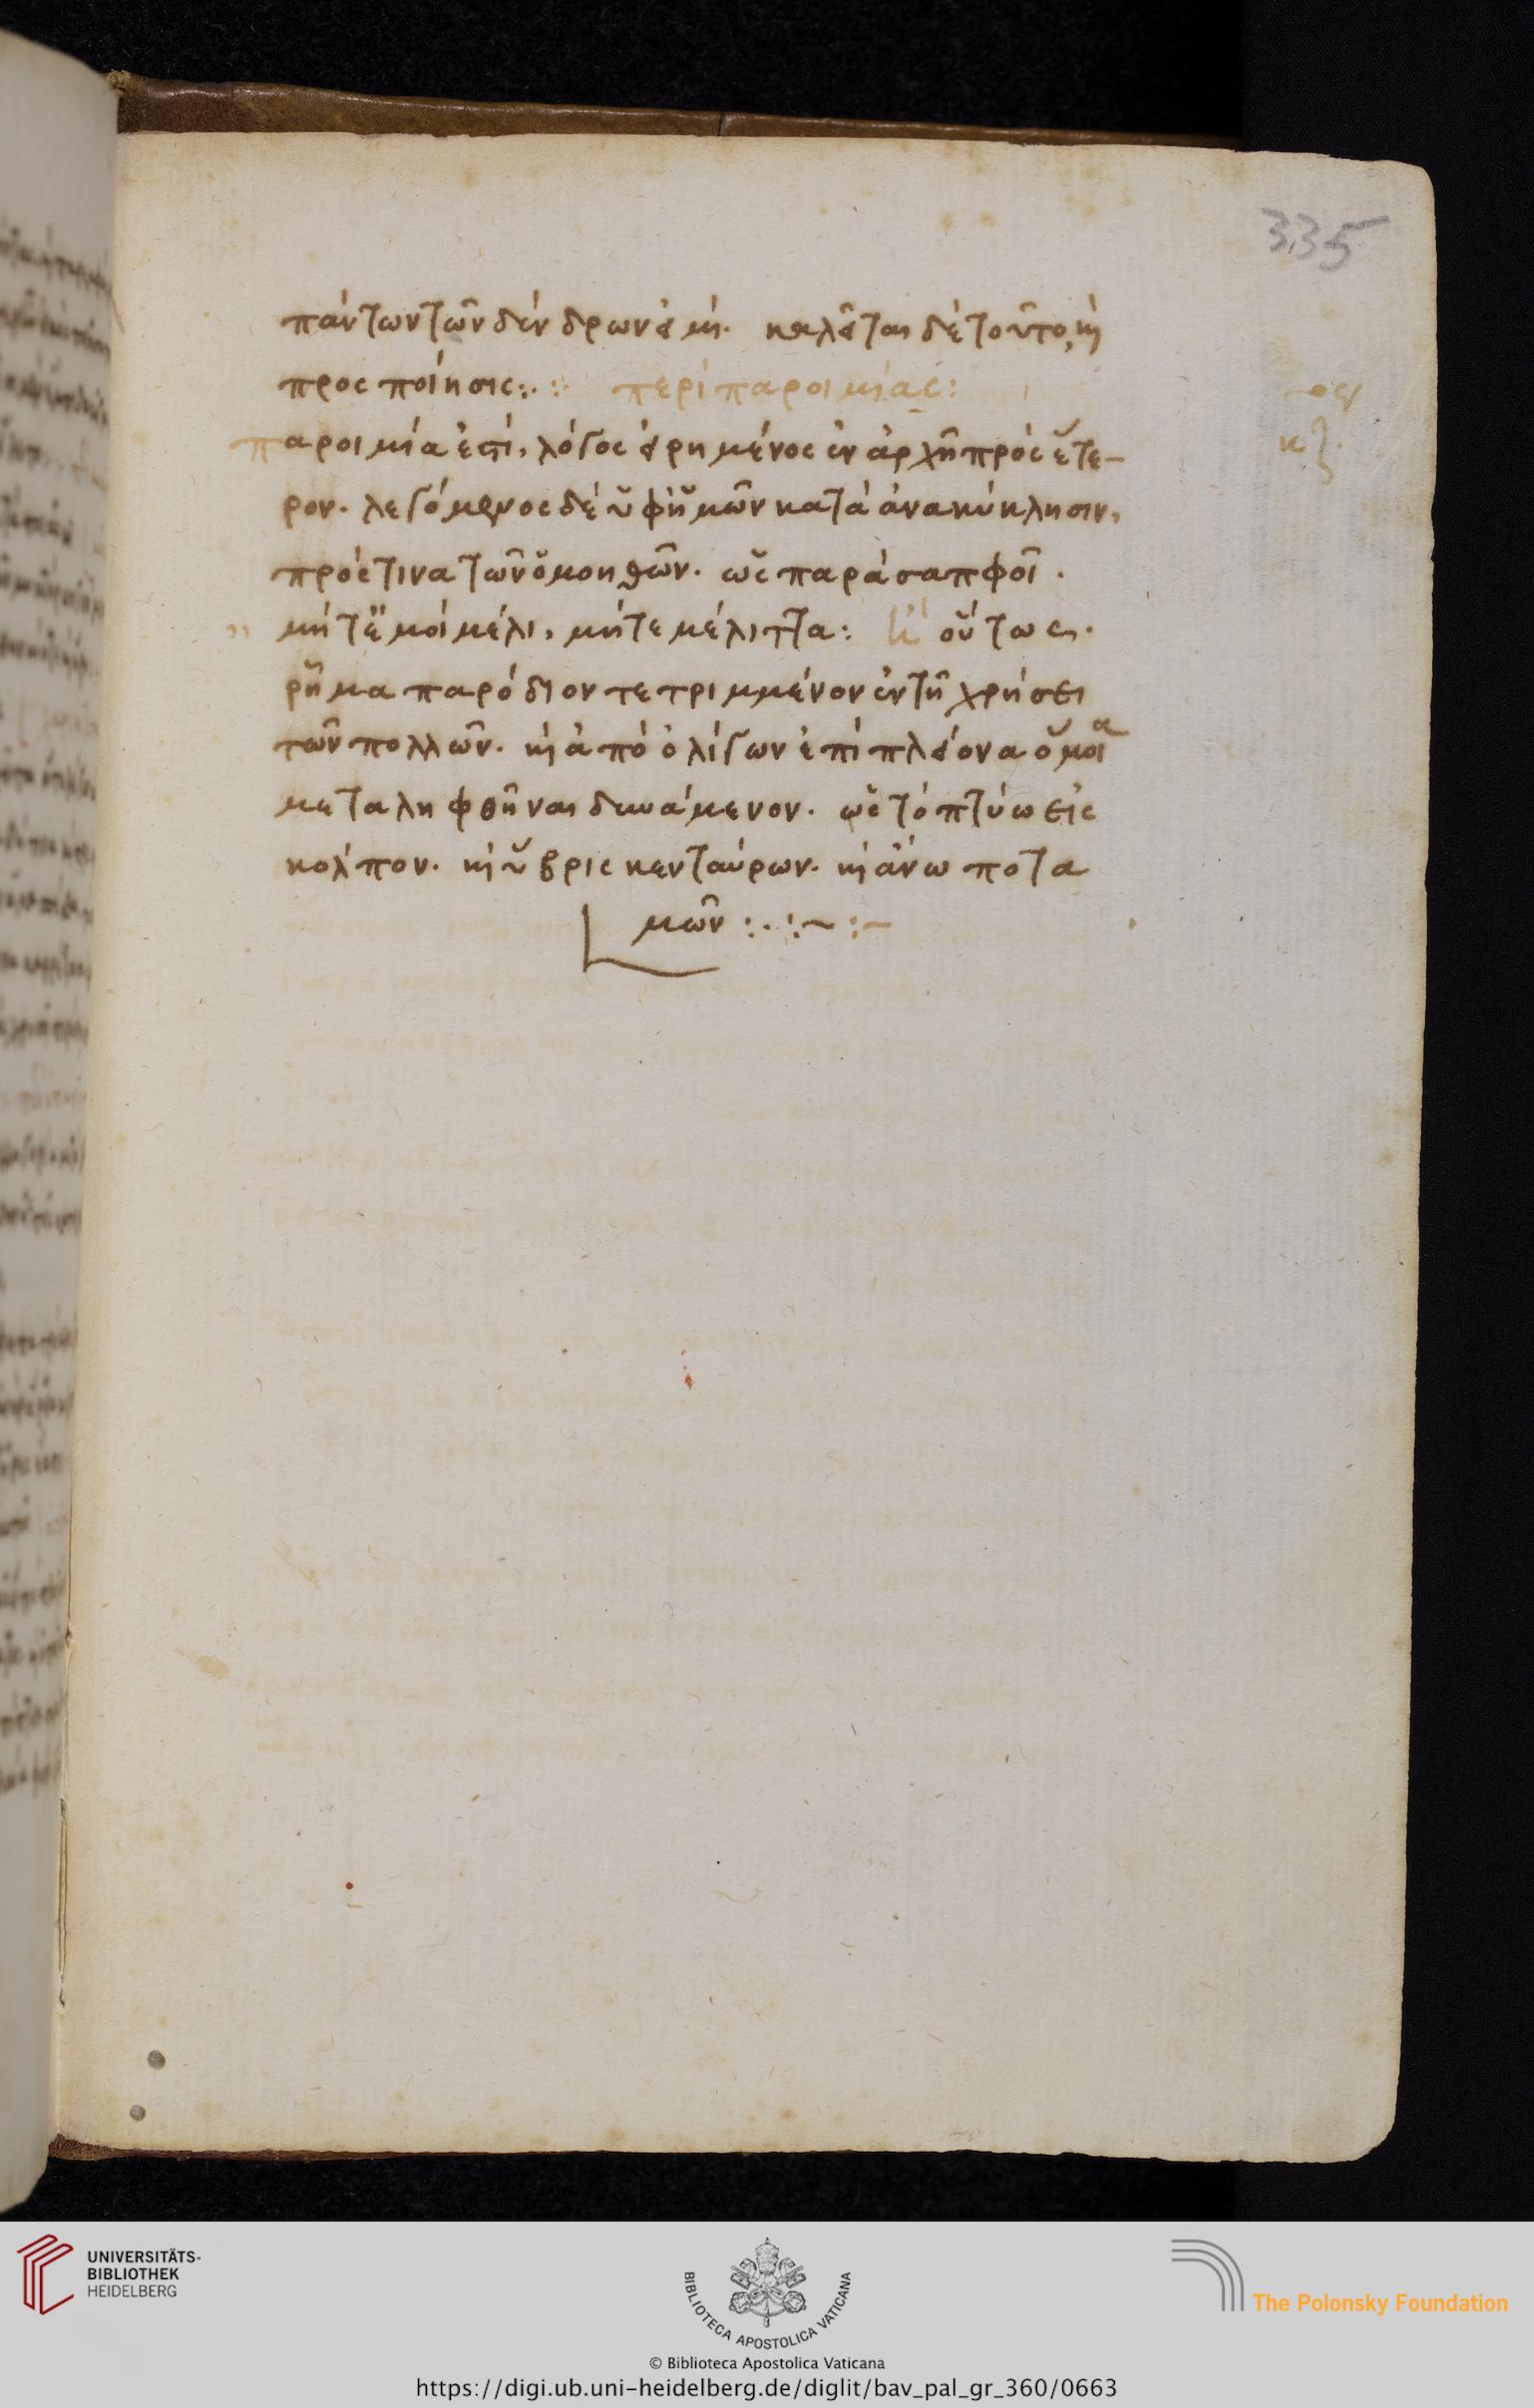 335
πάντων τῶν δένδρων εἰμί. καλεῖται δὲ τοῦτο, καὶ
προσποίησις:. : περὶ παροιμίας:
παροιμία ἐστὶ, λόγος εἰρημένος ἐν ἀρχῇ πρὸς ἕτε-
ρον. λεγόμενος δὲ ὑφ' ἡμῶν κατὰ ἀνακύκλησιν,
πρός τινα τῶν ὁμοιηθῶν. ὡς παρὰ σαπφοῖ.
μήτε μοὶ μέλι, μήτε μέλιττα: ἢ οὕτως.
ῥῆμα παρόδιον τετριμμένον ἐν τῇ χρήσει
τῶν πολλῶν. καὶ ἀπὸ ὀλίγων ἐπὶ πλείονα ὅμοια
μεταληφθῆναι δυνάμενον. ὡς τὸ πτύω εἰς
κόλπον. καὶ ὕβρις κενταύρων. καὶ ἄνω ποτα
μῶν :.:~ :~
UNIVERSITÄTS-
BIBLIOTHEK
HEIDELBERG
BIBLIOTECA APOSTOLICA VATICANA
The Polonsky Foundation
© Biblioteca Apostolica Vaticana
https://digi.ub.uni-heidelberg.de/diglit/bav_pal_gr_360/0663